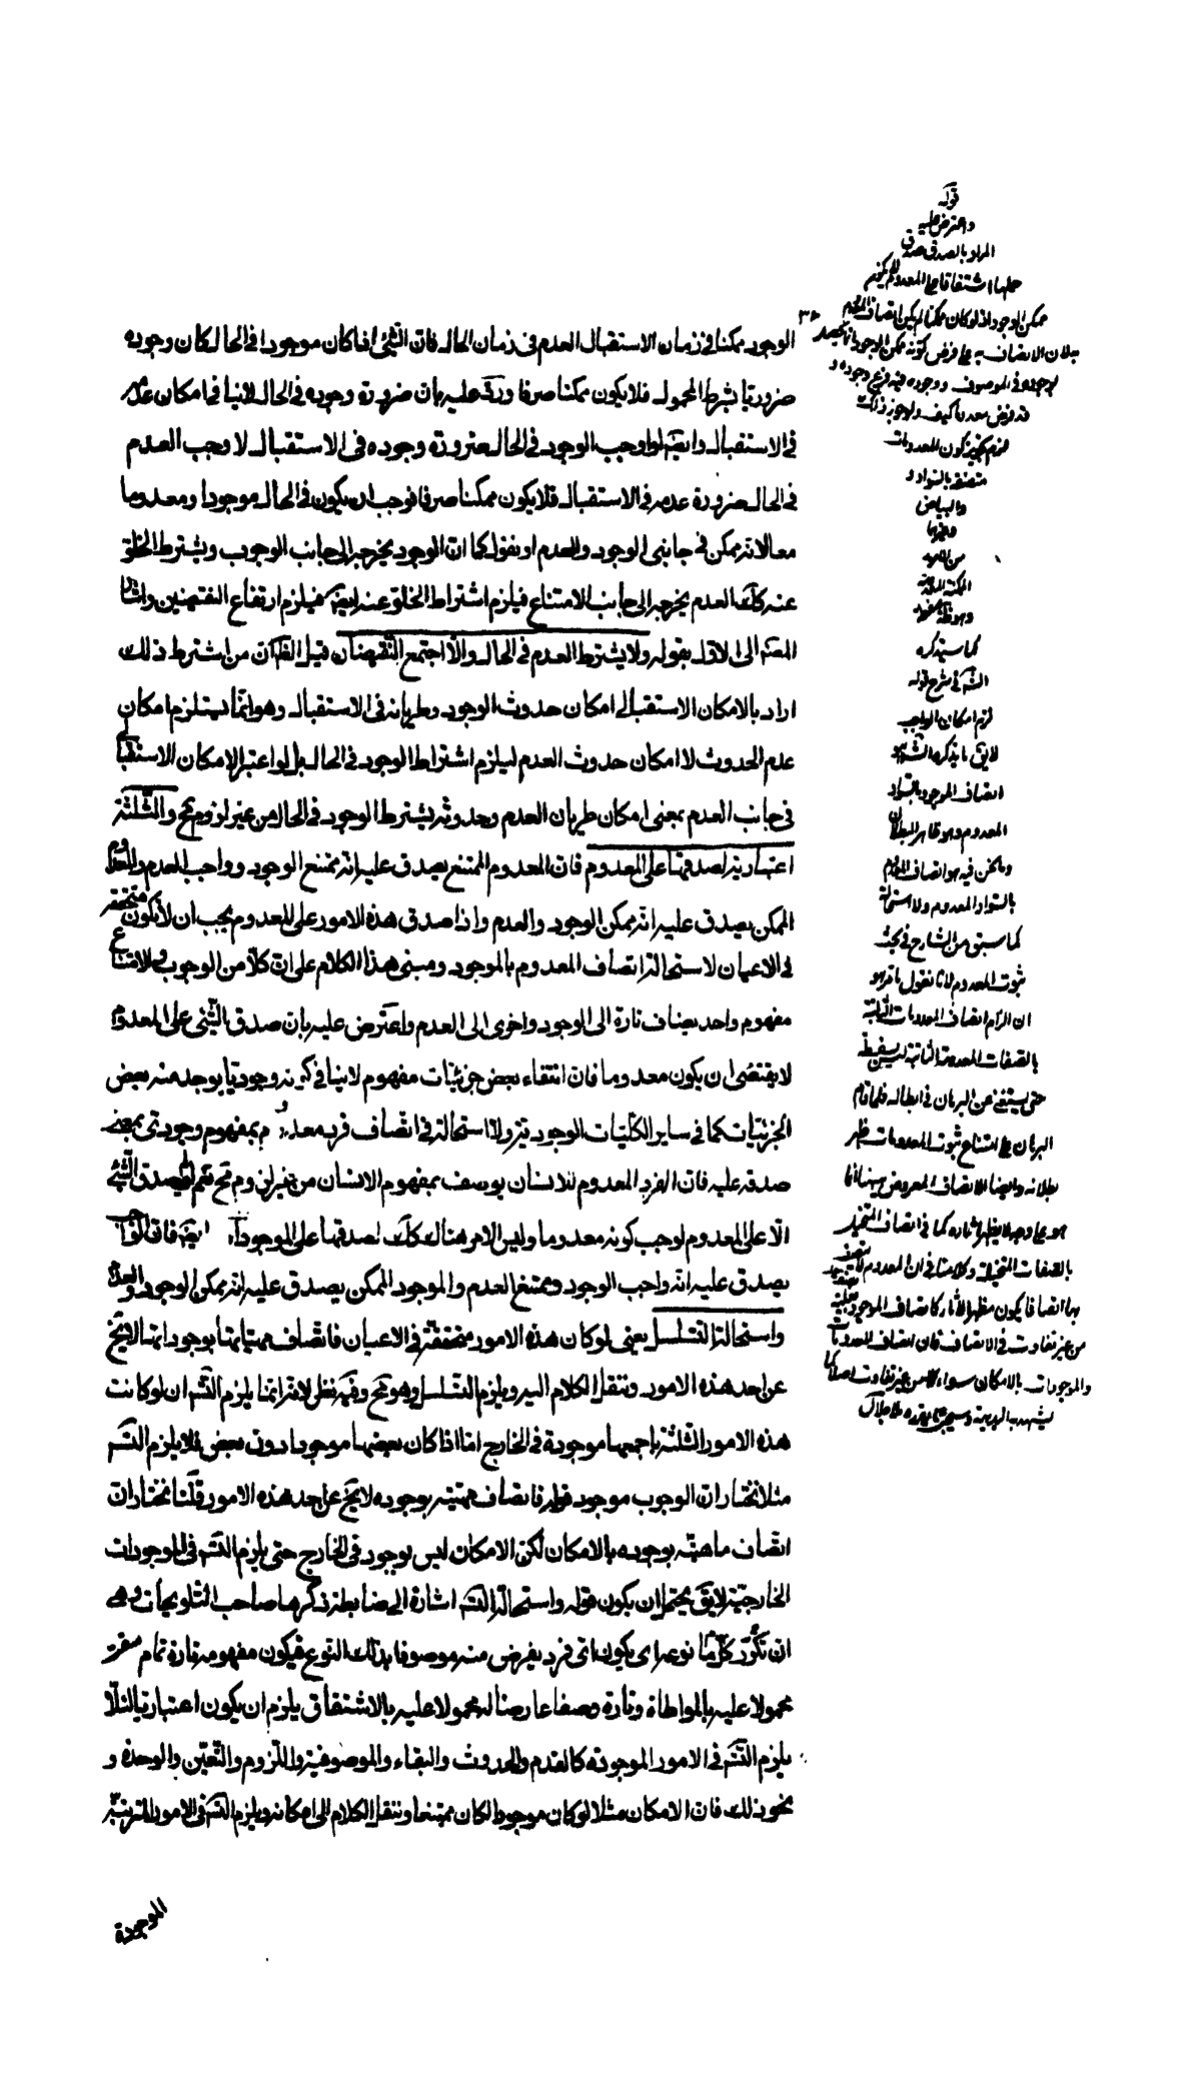 الوجود ممكنا في زمان الاستقبال العدم في زمان الحال فان الشئ اذا كان موجودا في الحال كان وجوده
ضروريا بشرط المحمول فلا يكون ممكنا صرفا ورد عليه بان ضرورة وجوده في الحال لا ينافي امكان عدمه
في الاستقبال وايضا لو اوجب الوجود في الحال ضرورة وجوده في الاستقبال لاوجب العدم
في الحال ضرورة عدمه في الاستقبال فلا يكون ممكنا صرفا فوجب ان يكون في الحال موجودا ومعدوما
معا لانه ممكن في جانبي الوجود والعدم او نقول كما ان الوجود يخرجه الى جانب الوجوب ويشترط الخلو
عنه كك العدم يخرجه الى جانب الامتناع فيلزم اشتراط الخلو عنه ايضا فيلزم ارتفاع النقيضين واشار
المصنف الى الاول بقوله ولا يشترط العدم في الحال والا اجتمع النقيضان قيل الظاهر ان من اشترط ذلك
اراد بالامكان الاستقبالي امكان حدوث الوجود وطريانه في الاستقبال وهو انما يستلزم امكان
عدم الحدوث لا امكان حدوث العدم ليلزم اشتراط الوجود في الحال بل لو اعتبر الامكان الاستقبالي
في جانب العدم بمعنى امكان طريان العدم وحدوثه يشترط الوجود في الحال من غير لزوم مح والثلثة
اعتبارية لصدقها على المعدوم فان المعدوم الممتنع يصدق عليه انه ممتنع الوجود وواجب العدم والمعدوم
الممكن يصدق عليه انه ممكن الوجود والعدم واذا صدق هذه الامور على المعدوم يجب ان لا تكون متحققة
في الاعيان لاستحالة اتصاف المعدوم بالموجود ومبنى هذا الكلام على ان كلا من الوجوب والامتناع
مفهوم واحد يضاف تارة الى الوجود واخرى الى العدم واعترض عليه بان صدق الشئ على المعدوم
لا يقتضي ان يكون معدوما فان انتفاء بعض جزئيات مفهوم لا ينافي كونه وجوديا يوجد منه بعض
الجزئيات كما في ساير الكليات الوجودية ولا استحالة في اتصاف فرد معدوم بمفهوم وجودي بمعنى
صدقه عليه فان الفرد المعدوم للانسان يوصف بمفهوم الانسان من غير لزوم مح نعم لو لم يصدق الشئ
الا على المعدوم لوجب كونه معدوما وليس الامر هنالك كك لصدقها على الموجود ايضا فان الواجب
يصدق عليه انه واجب الوجود وممتنع العدم والموجود الممكن يصدق عليه انه ممكن الوجود والعدم
واستحالة التسلسل يعني لو كان هذه الامور متحققة في الاعيان فاتصاف مهياتها بوجوداتها لا يخ
عن احد هذه الامور وننقل الكلام اليه ويلزم التسلسل وهو مح وفيه نظر لانه انما يلزم التس ان لو كانت
هذه الامور الثلثة باجمعها موجودة في الخارج اما اذا كان بعضها موجودا دون بعض فلا يلزم التس
مثلا نختار ان الوجوب موجود قوله فاتصاف مهيته بوجوده لا يخ عن احد هذه الامور قلنا نختار ان
اتصاف ماهيته بوجوده بالامكان لكن الامكان ليس بوجود في الخارج حتى يلزم التس في الموجودات
الخارجية لا يق يحتمل ان يكون قوله واستحالة التس اشارة الى ضابطة ذكرها صاحب التلويحات وهي
ان تكرر كل ما نوعه اي يكون اي فرد يفرض منه موصوفا بذلك النوع فيكون مفهومه تارة تمام
محمولا عليه بالمواطاة وتارة وصفا عارضا له محمولا عليه بالاشتقاق يلزم ان يكون اعتباريا لئلا
يلزم التس في الامور الموجودة كالقدم والحدوث والبقاء والموصوفية واللزوم والتعين والوحدة و
نحو ذلك فان الامكان مثلا لو كان موجودا لكان ممكنا وننقل الكلام الى امكانه ويلزم التس في الامور المترتبة
الموجودة
قوله
واعترض عليه
المراد بالصدق صدق
حملها اشتقاقا على المعدوم
ممكن الوجود اذ لو كان ممكنا لم يكن اتصاف المعدوم
لوجوده في الموصوف ووجوده فيه فرع وجوده و
قد فرض معدوما كيف ولو جوز ذلك
متصفة بالسواد و
والبياض
وغيرها
كما سيذكره
الش في شرح قوله
لزم امكان الواجب
لا يق ما يذكره الش هو
اتصاف الموجود بالسواد
المعدوم وهو ظاهر البطلان
وما نحن فيه هو اتصاف المعدوم
بالسواد المعدوم ولا استحالة
كما سبق من الشارح في بحث
ثبوت المعدوم لانا نقول ما مر هو
ان الزام اتصاف المعدومات الثابتة
بالصفات المعدومة الثابتة ليس سفسطة
حتى يستغنى عن البرهان في ابطاله فلما قام
البرهان على امتناع ثبوت المعدومات ظهر
بطلانه وايضا الاتصاف المعروض ههنا انما
هو على وجه لا يظهر اثاره كما في اتصاف المتخيل
بالصفات المتخيلة وكلامنا في ان المعدوم لا يتصف
بها اتصافا يكون مظهرا للاثار كاتصاف الموجود
من غير تفاوت في الاتصاف فان اتصاف المعدومات
والموجودات بالامكان سواء من غير تفاوت اصلا كما
يشهد به البديهة